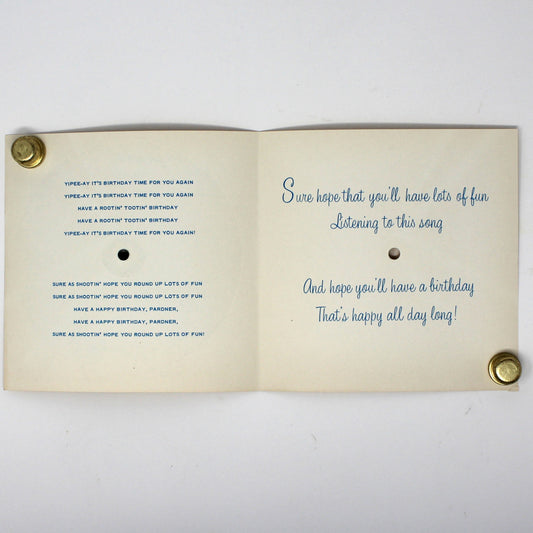 YIPEE-AY IT'S BIRTHDAY TIME FOR YOU AGAIN
YIPEE-AY IT'S BIRTHDAY TIME FOR YOU AGAIN
HAVE A ROOTIN' TOOTIN' BIRTHDAY
HAVE A ROOTIN' TOOTIN' BIRTHDAY
YIPEE-AY IT'S BIRTHDAY TIME FOR YOU AGAIN!
SURE AS SHOOTIN' HOPE YOU ROUND UP LOTS OF FUN
SURE AS SHOOTIN' HOPE YOU ROUND UP LOTS OF FUN
HAVE A HAPPY BIRTHDAY, PARDNER,
HAVE A HAPPY BIRTHDAY, PARDNER,
SURE AS SHOOTIN' HOPE YOU ROUND UP LOTS OF FUN!
Sure hope that you'll have lots of fun
Listening to this song
And hope you'll have a birthday
That's happy all day long!